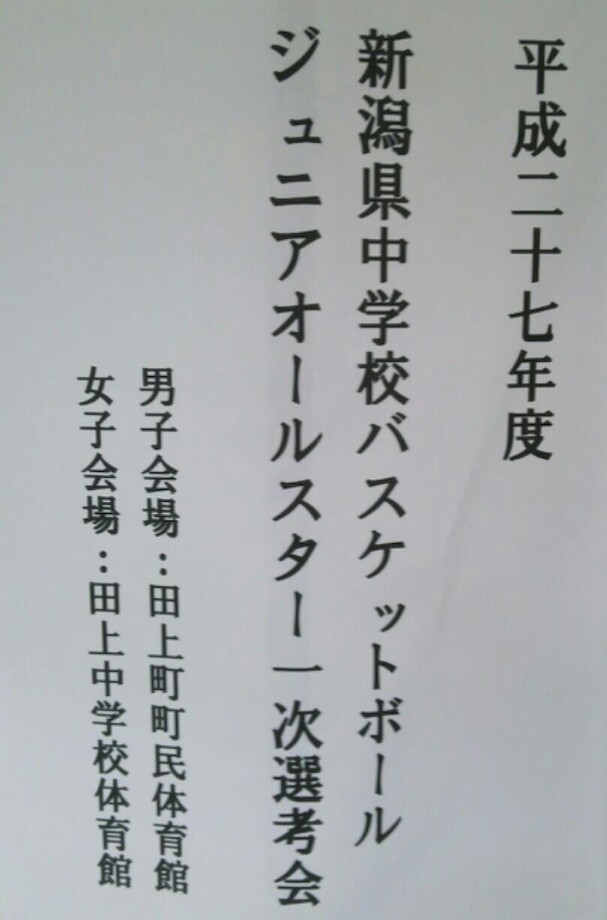 平成二十七年度
新潟県中学校バスケットボール
ジュニアオールスター一次選考会
男子会場：田上町町民体育館
女子会場：田上中学校体育館